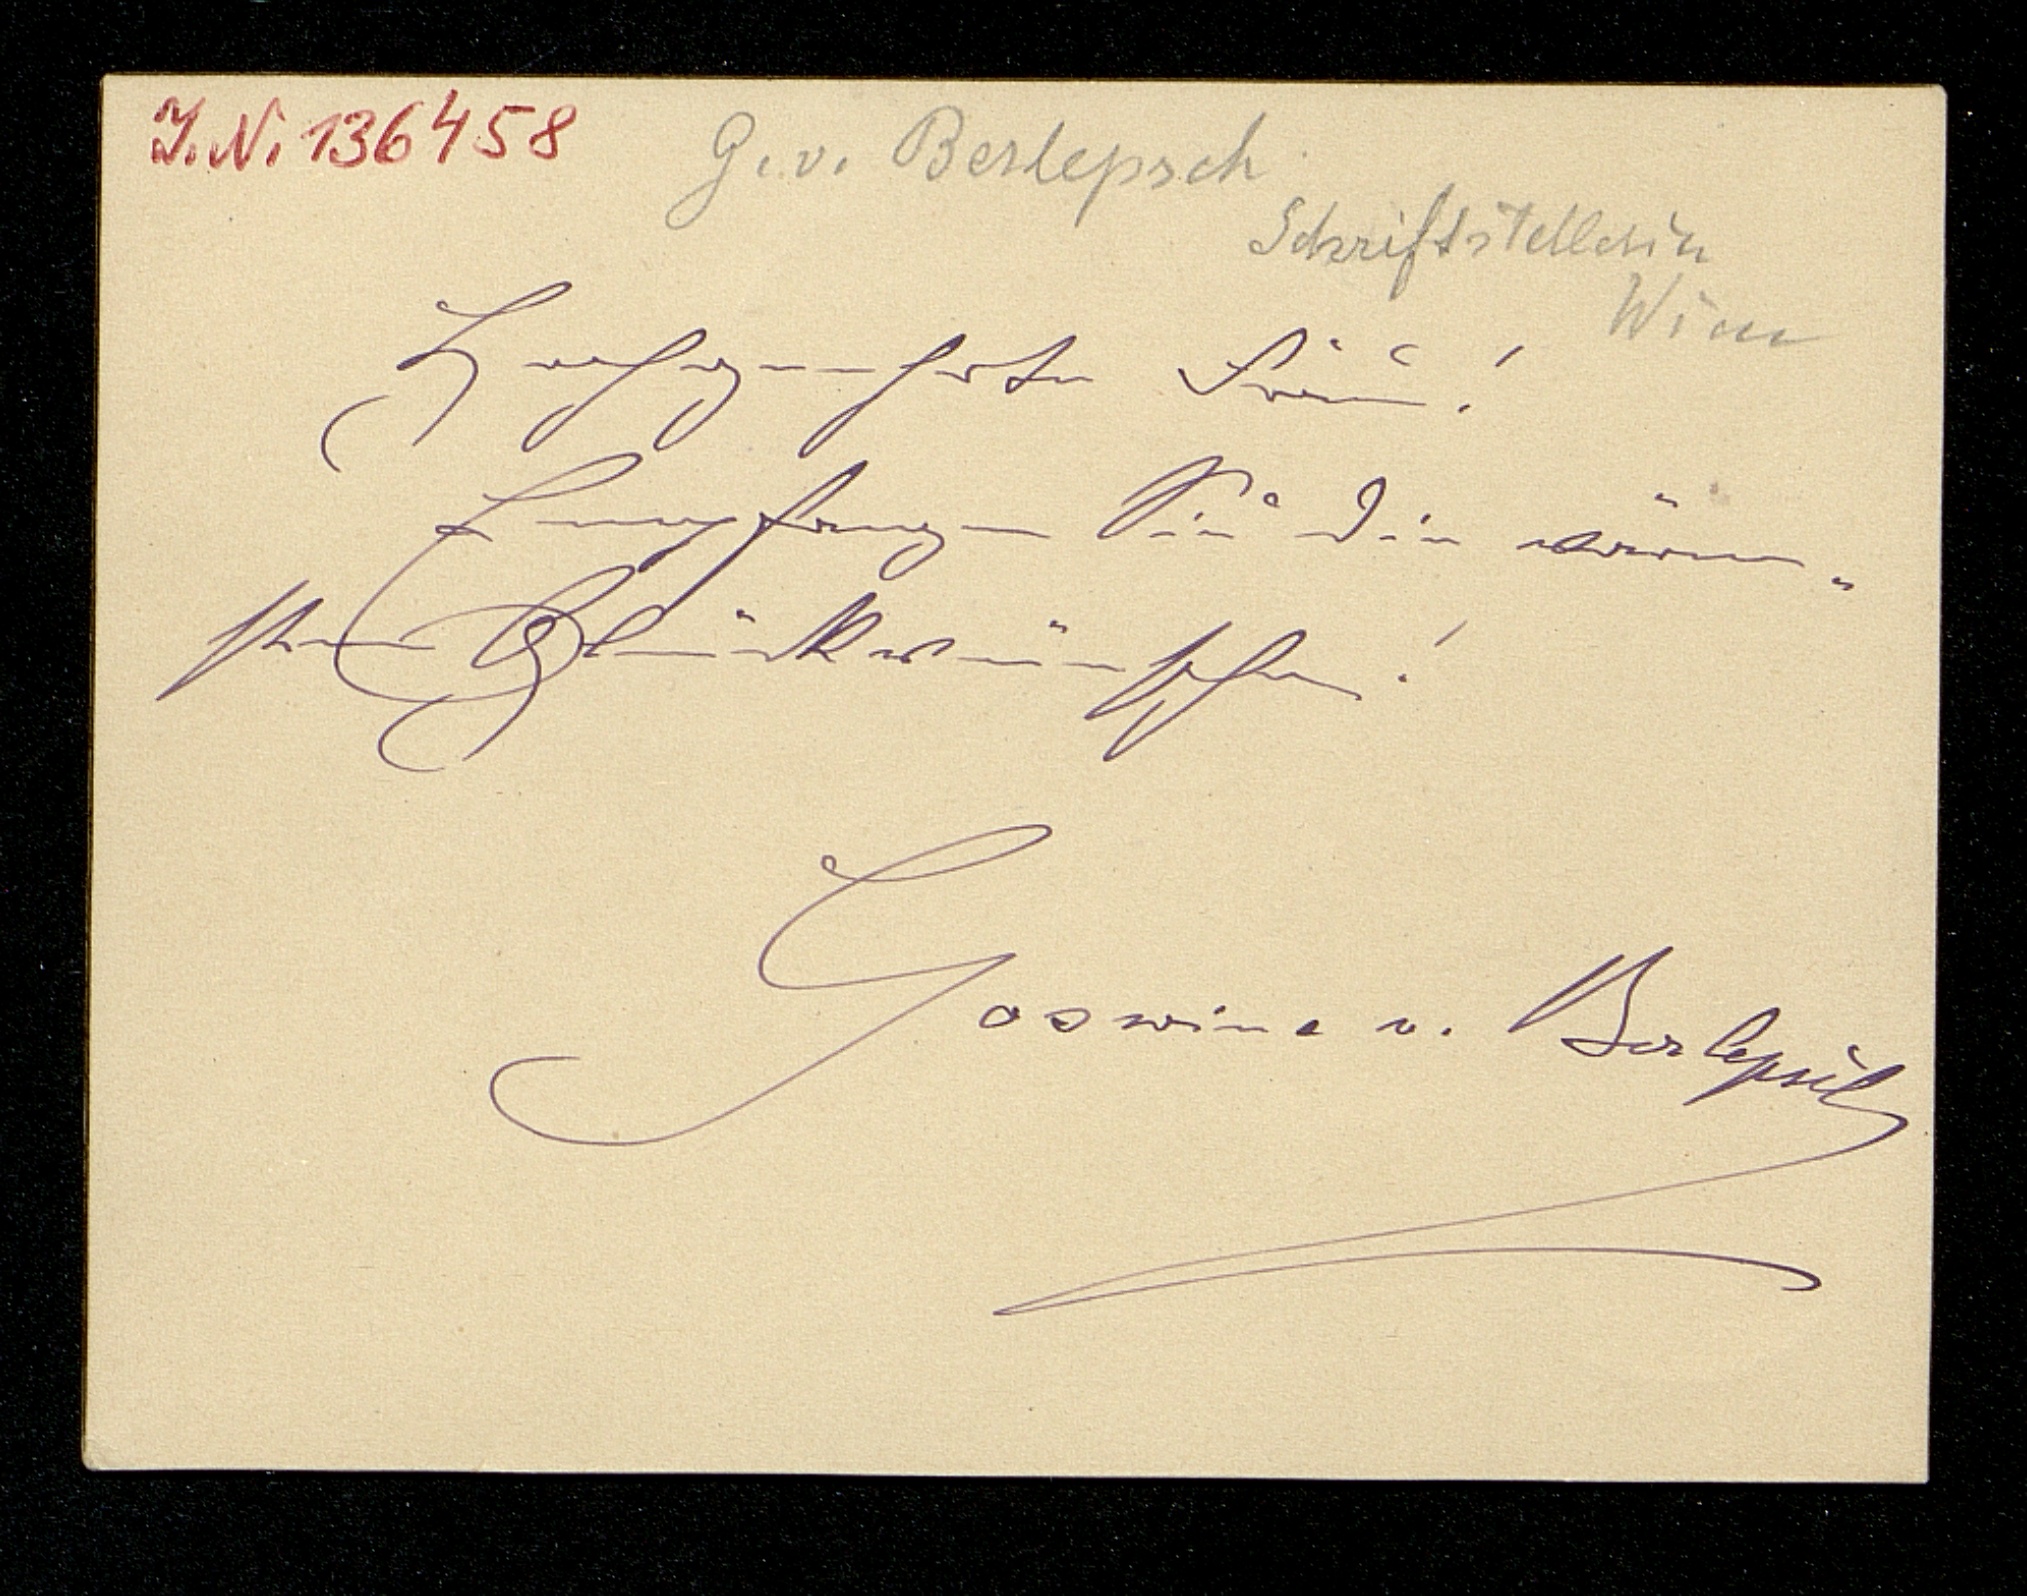 J.N. 136458
G. v. Berlepsch
Schriftstellerin
Wien
Hochgeehrte Frau!
Empfangen Sie die wärm-
sten Glückwünsche!
Goswine v. Berlepsch